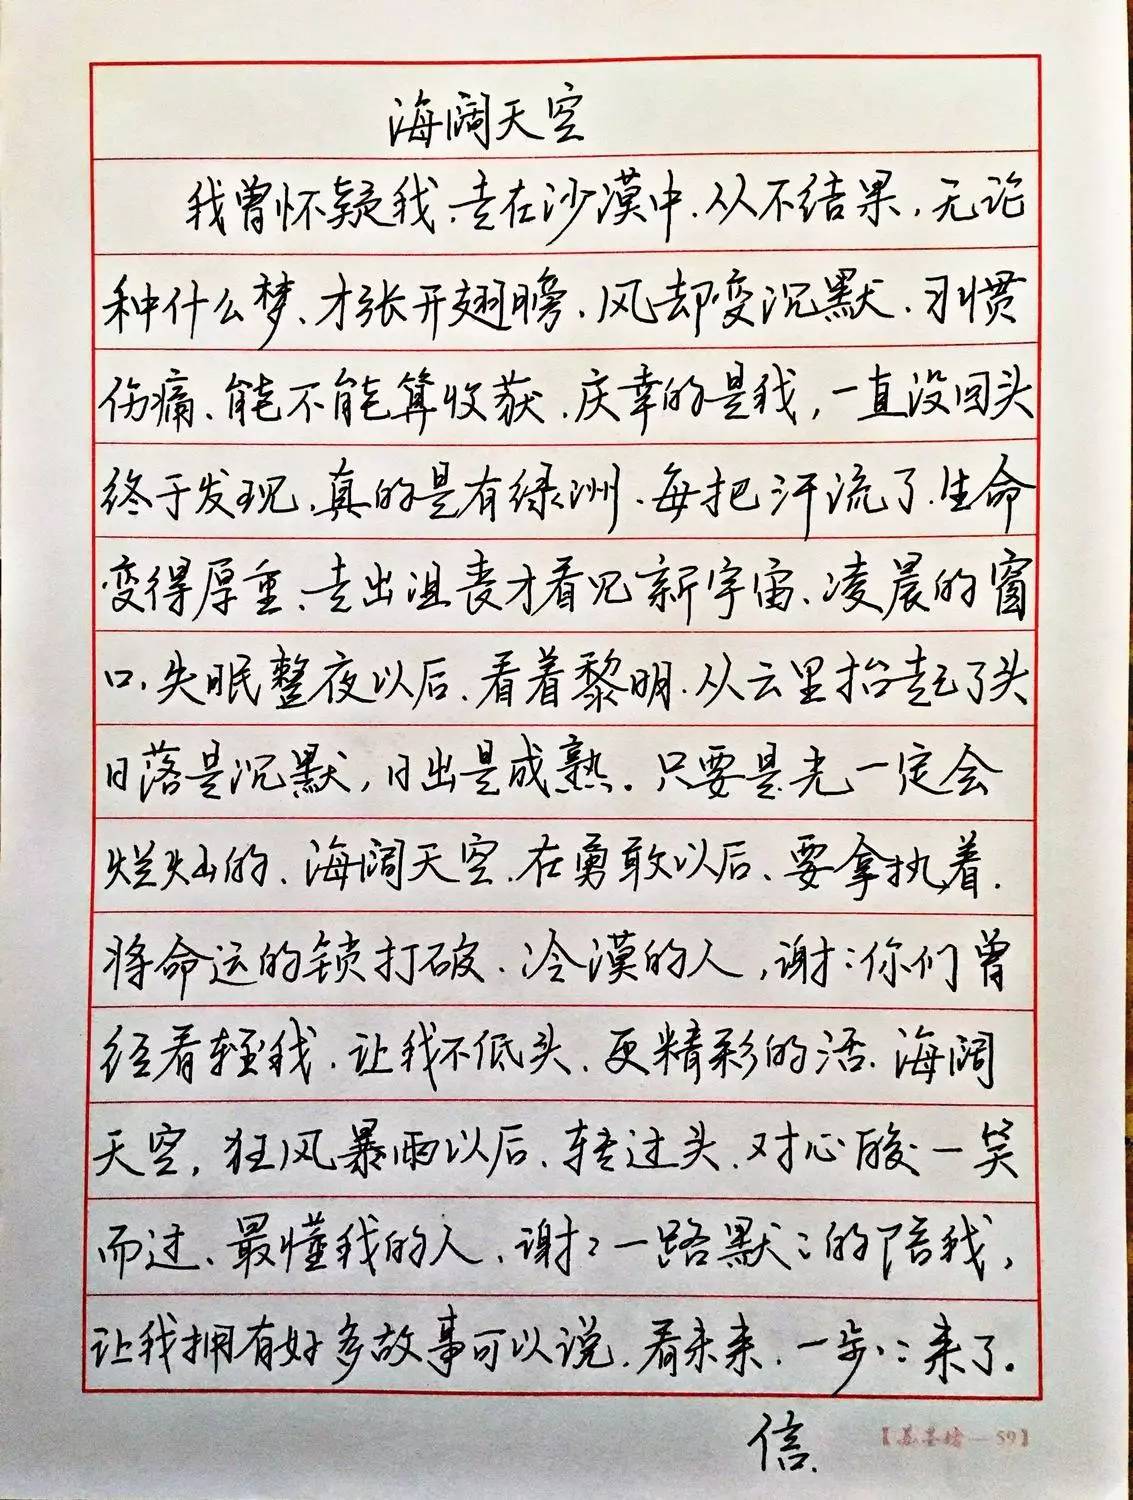 海阔天空
我曾怀疑我、走在沙漠中、从不结果，无论
种什么梦、才张开翅膀、风却变沉默、习惯
伤痛、能不能算收获、庆幸的是我，一直没回头
终于发现、真的是有绿洲、每把汗流了、生命
变得厚重、走出沮丧才看见新宇宙、凌晨的窗
口、失眠整夜以后、看着黎明、从云里抬起了头
日落是沉默，日出是成熟。只要是光一定会
灿烂的、海阔天空、在勇敢以后、要拿执着、
将命运的锁打破、冷漠的人，谢：你们曾
经看轻我、让我不低头、更精彩的活、海阔
天空，狂风暴雨以后、转过头、对心酸一笑
而过、最懂我的人、谢：一路默：的陪我，
让我拥有好多故事可以说、看未来、一步：来了。
信